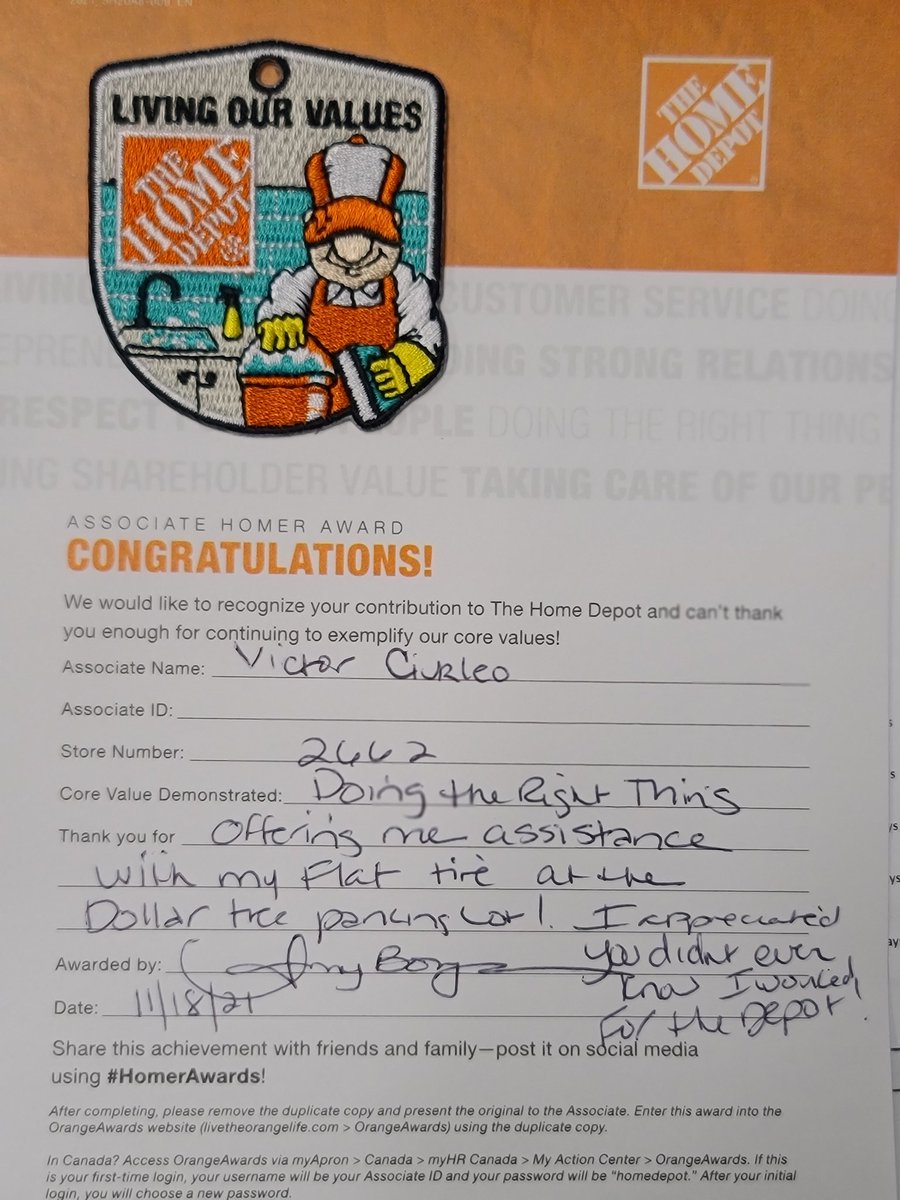 LIVING OUR VALUES
THE
HOME
DEPOT
THE
HOME
DEPOT
CUSTOMER SERVICE DOING
STRONG RELATIONS
RESPECT DOING THE RIGHT THING
SHAREHOLDER VALUE TAKING CARE OF OUR PE
ASSOCIATE HOMER AWARD
CONGRATULATIONS!
We would like to recognize your contribution to The Home Depot and can't thank
you enough for continuing to exemplify our core values!
Associate Name: Victor
Associate ID:
Store Number: 2662
Core Value Demonstrated: Doing the Right Thing
Thank you for Offering me assistance
with my Flat tire at the
Dollar tree parking Lot! I appreciated
you didnt even
know I worked
For the Depot.
Awarded by:
Date: 11/18/21
Share this achievement with friends and family—post it on social media
using #HomerAwards!
After completing, please remove the duplicate copy and present the original to the Associate. Enter this award into the
OrangeAwards website (livetheorangelife.com > OrangeAwards) using the duplicate copy.
In Canada? Access OrangeAwards via myApron > Canada > myHR Canada > My Action Center > OrangeAwards. If this
is your first-time login, your username will be your Associate ID and your password will be "homedepot." After your initial
login, you will choose a new password.